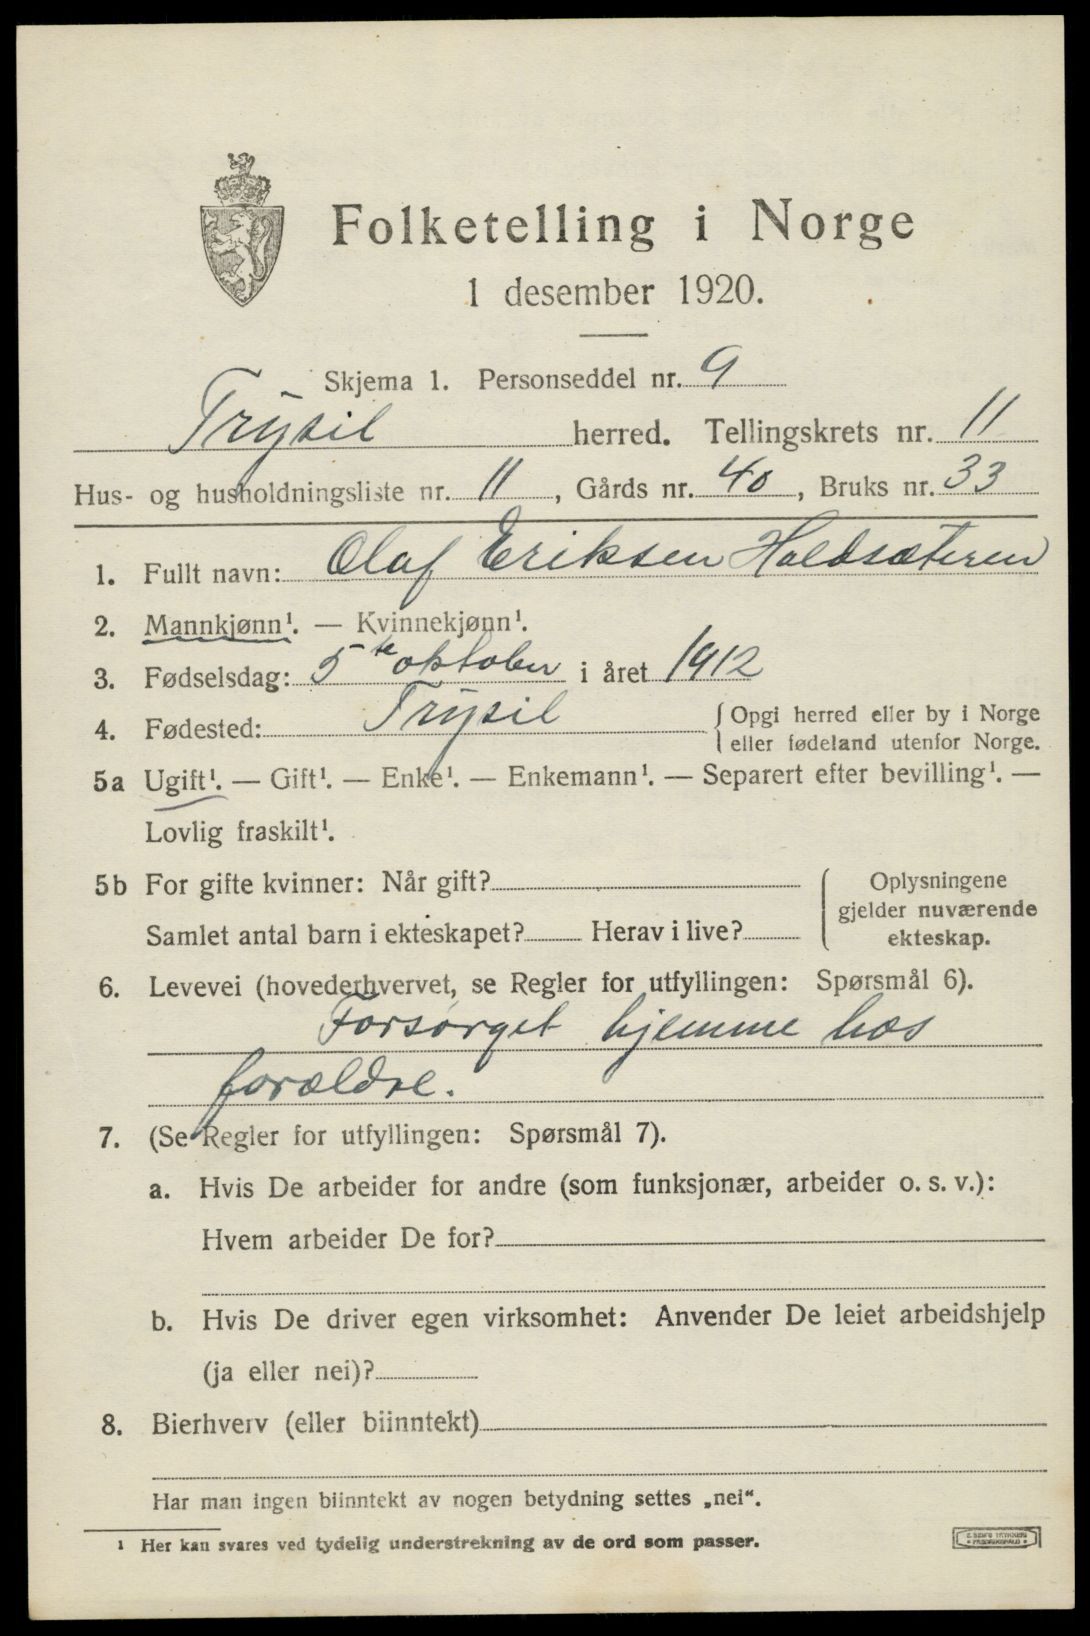 Folketelling i Norge
1 desember 1920.
Skjema 1. Personseddel nr. 9
Trysil herred. Tellingskrets nr. 11
Hus- og husholdningsliste nr. 11, Gårds nr. 40, Bruks nr. 33
1. Fullt navn: Olaf Eriksen Haldsæteren
2. Mannkjønn¹. — Kvinnekjønn¹.
3. Fødselsdag: 5te oktober i året 1912
4. Fødested: Trysil { Opgi herred eller by i Norge
eller fødeland utenfor Norge.
5a Ugift¹. — Gift¹. — Enke¹. — Enkemann¹. — Separert efter bevilling¹. —
Lovlig fraskilt¹.
5b For gifte kvinner: Når gift?
Samlet antal barn i ekteskapet? Herav i live?
Oplysningene
gjelder nuværende
ekteskap.
6. Levevei (hovederhvervet, se Regler for utfyllingen: Spørsmål 6).
Forsørget hjemme hos
forældre.
7. (Se Regler for utfyllingen: Spørsmål 7).
a. Hvis De arbeider for andre (som funksjonær, arbeider o. s. v.):
Hvem arbeider De for?
b. Hvis De driver egen virksomhet: Anvender De leiet arbeidshjelp
(ja eller nei)?
8. Bierhverv (eller biinntekt)
Har man ingen biinntekt av nogen betydning settes „nei“.
1 Her kan svares ved tydelig understrekning av de ord som passer.